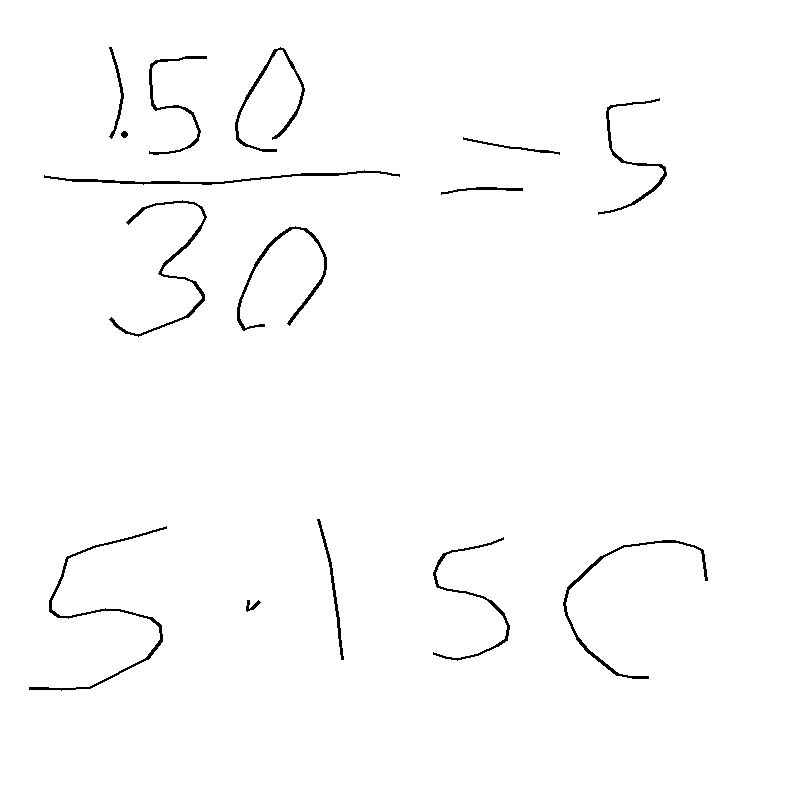 1.50
30
= 5
5 · 150